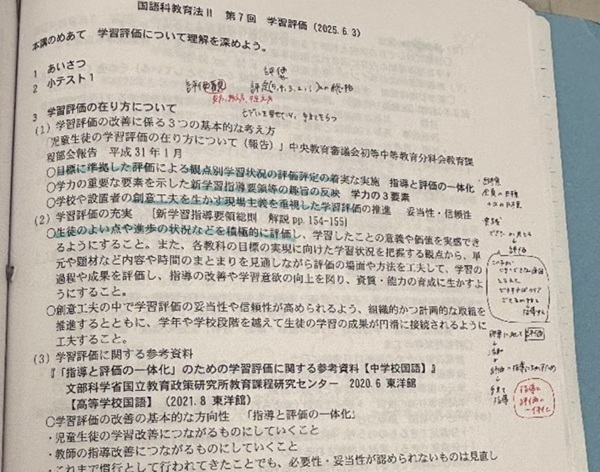 国語科教育法Ⅱ 第7回 学習評価(2025.6.3)
本講のめあて 学習評価について理解を深めよう。
1 あいさつ
2 小テスト1
評価
評価観
3 学習評価の在り方について
(1) 学習評価の改善に係る3つの基本的な考え方
「児童生徒の学習評価の在り方について(報告)」中央教育審議会初等中等教育分科会教育課
程部会報告 平成31年1月
○目標に準拠した評価による観点別学習状況の評価評定の着実な実施 指導と評価の一体化
○学力の重要な要素を示した新学習指導要領等の趣旨の反映 学力の3要素
○学校や設置者の創意工夫を生かす現場主義を重視した学習評価の推進 妥当性・信頼性
(2) 学習評価の充実 [新学習指導要領総則 解説 pp.154-155]
○生徒のよい点や進歩の状況などを積極的に評価し、学習したことの意義や価値を実感でき
るようにすること。また、各教科の目標の実現に向けた学習状況を把握する観点から、単
元や題材など内容や時間のまとまりを見通しながら評価の場面や方法を工夫して、学習の
過程や成果を評価し、指導の改善や学習意欲の向上を図り、資質・能力の育成に生かすよ
うにすること。
○創意工夫の中で学習評価の妥当性や信頼性が高められるよう、組織的かつ計画的な取組を
推進するとともに、学年や学校段階を越えて生徒の学習の成果が円滑に接続されるように
工夫すること。
(3) 学習評価に関する参考資料
『「指導と評価の一体化」のための学習評価に関する参考資料【中学校国語】』
文部科学省国立教育政策研究所教育課程研究センター 2020.6 東洋館
【高等学校国語】(2021.8 東洋館)
○学習評価の改善の基本的な方向性 「指導と評価の一体化」
・児童生徒の学習改善につながるものにしていくこと
・教師の指導改善につながるものにしていくこと
・これまで慣行として行われてきたことでも、必要性・妥当性が認められないものは見直し
評価
指導と
評価の
一体化